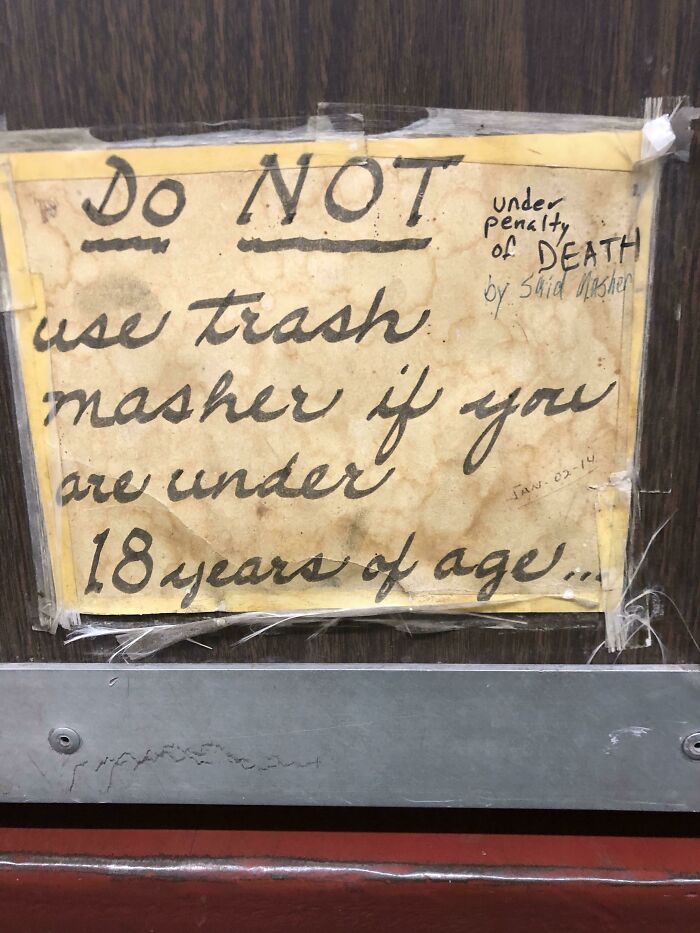 Do NOT
under
penalty
of DEATH
by Said Masher
use trash
masher if you
are under
JAN-02-14
18 years of age...